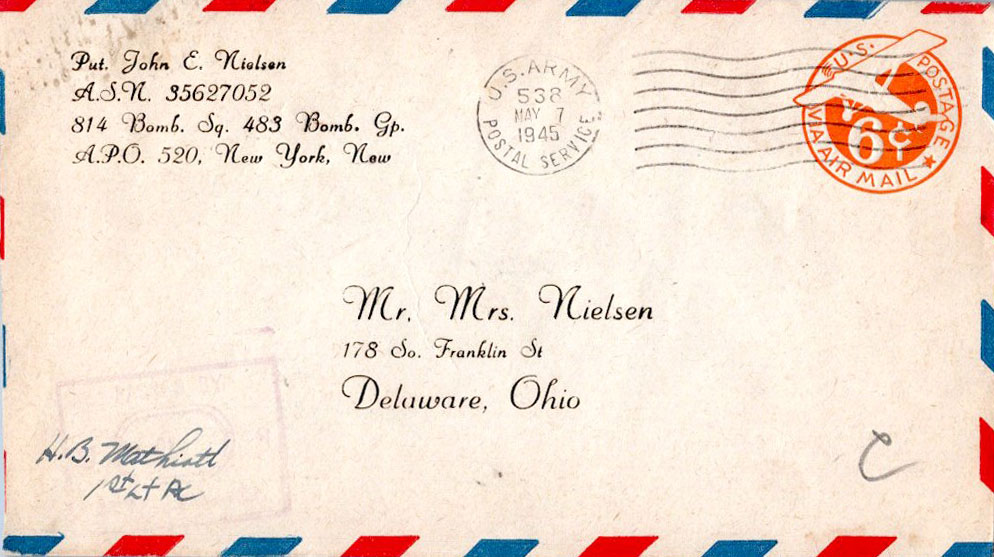 Put. John E. Nielsen
A.S.N. 35627052
814 Bomb. Sq. 483 Bomb. Gp.
A.P.O. 520, New York, New
U.S. ARMY
538
MAY 7
1945
POSTAL SERVICE
U.S. POSTAGE
6¢
VIA AIR MAIL
Mr. Mrs. Nielsen
178 So. Franklin St
Delaware, Ohio
H.B. Mathiott
1st Lt AC
C